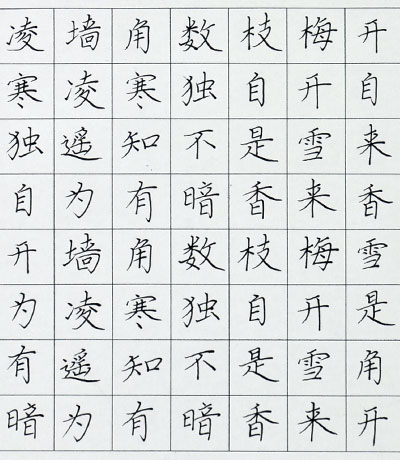 凌墙角数枝梅开
寒凌寒独自开自
独遥知不是雪来
自为有暗香来香
开墙角数枝梅雪
为凌寒独自开是
有遥知不是雪角
暗为有暗香来开